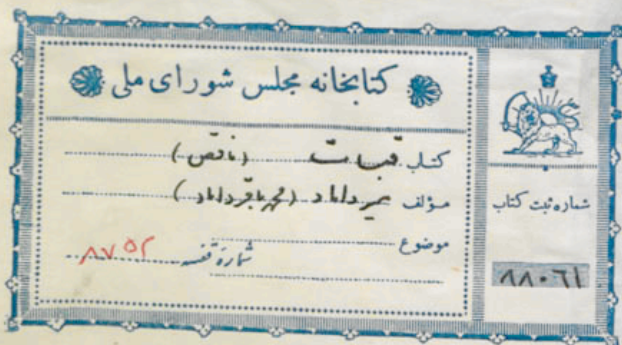 کتابخانه مجلس شورای ملی
کتاب قبسات (ناقص)
مؤلف میرداماد (محمد باقر داماد)
موضوع
شماره قفسه ۸۷۵۲
شماره ثبت کتاب
۸۸۰۶۱